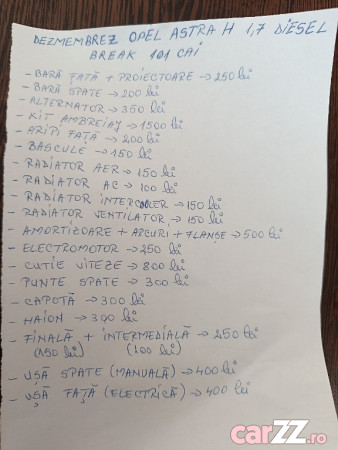 DEZMEMBREZ OPEL ASTRA H 1,7 DIESEL
BREAK 101 CAI
- BARĂ FAȚĂ + PROIECTOARE → 250 lei
- BARĂ SPATE → 200 lei
- ALTERNATOR → 350 lei
- KIT AMBREIAJ → 1500 lei
- ARIPI FAȚĂ → 200 lei
- BASCULE → 150 lei
- RADIATOR AER → 150 lei
- RADIATOR AC → 100 lei
- RADIATOR INTERCOOLER → 150 lei
- RADIATOR VENTILATOR → 150 lei
- AMORTIZOARE + ARCURI + FLANȘE → 500 lei
- ELECTROMOTOR → 250 lei
- CUTIE VITEZE → 800 lei
- PUNTE SPATE → 300 lei
- CAPOTĂ → 300 lei
- HAION → 300 lei
- FINALĂ + INTERMEDIALĂ → 250 lei
(150 lei) (100 lei)
- UȘĂ SPATE (MANUALĂ) → 400 lei
- UȘĂ FAȚĂ (ELECTRICĂ) → 400 lei
carZZ.ro